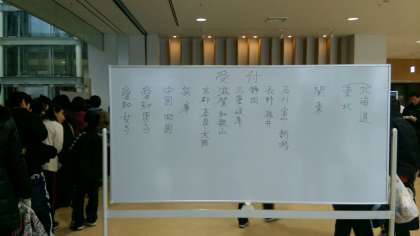 受付
北海道
東北
関東
石川 富山 新潟
長野 福井
静岡
三重 岐阜
滋賀 和歌山
京都 奈良 大阪
兵庫
中国・四国
愛知男子
愛知女子